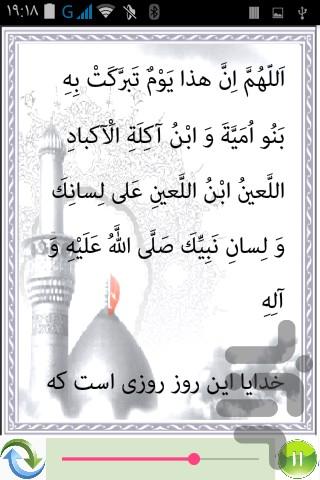 ۱۹:۱۸
G
اَللّهُمَّ اِنَّ هذا يَوْمٌ تَبرَّكَتْ بِهِ
بَنُو اُمَيَّةَ وَ ابْنُ آكِلَةِ الْآكبادِ
اللَّعينُ ابْنُ اللَّعينِ عَلى لِسانِكَ
وَ لِسانِ نَبِيِّكَ صَلَّى اللَّهُ عَلَيْهِ وَ
آلِهِ
خدایا این روز روزی است که